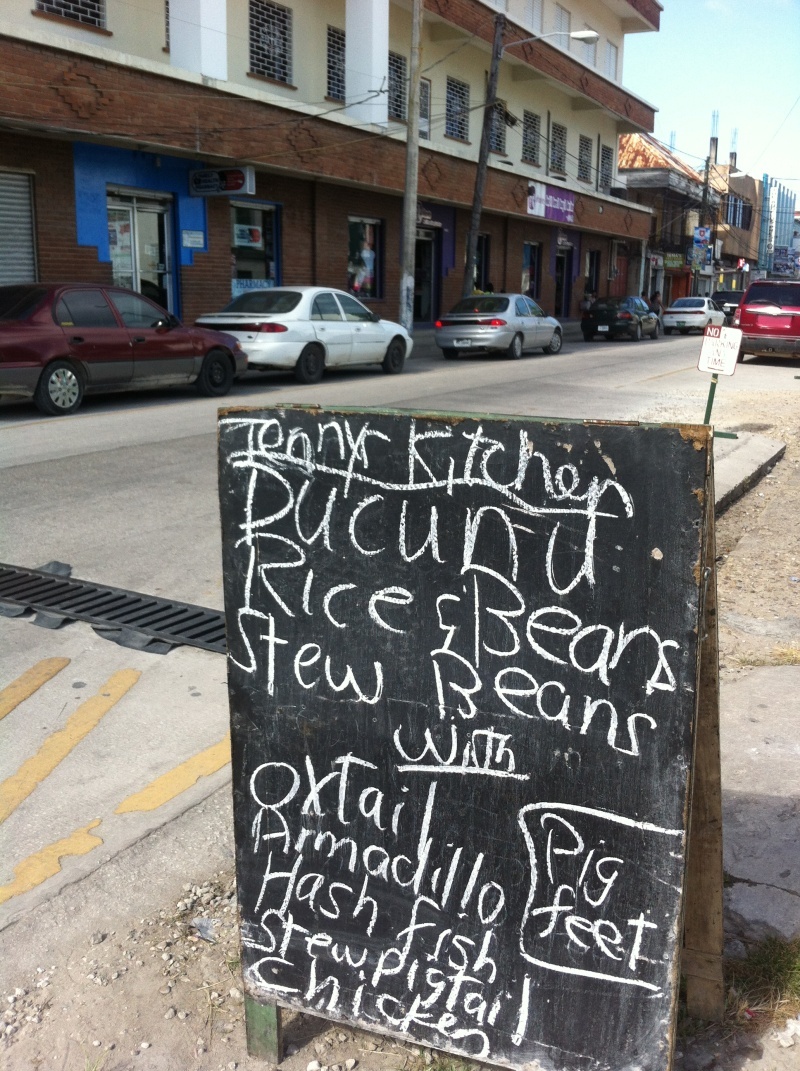 Jennys Kitchen
Ducunu
Rice & Beans
Stew Beans
with
Oxtail
Armadillo
Hash fish
Stew pigtail
Chicken
Pig
feet
NO
PHARMACY